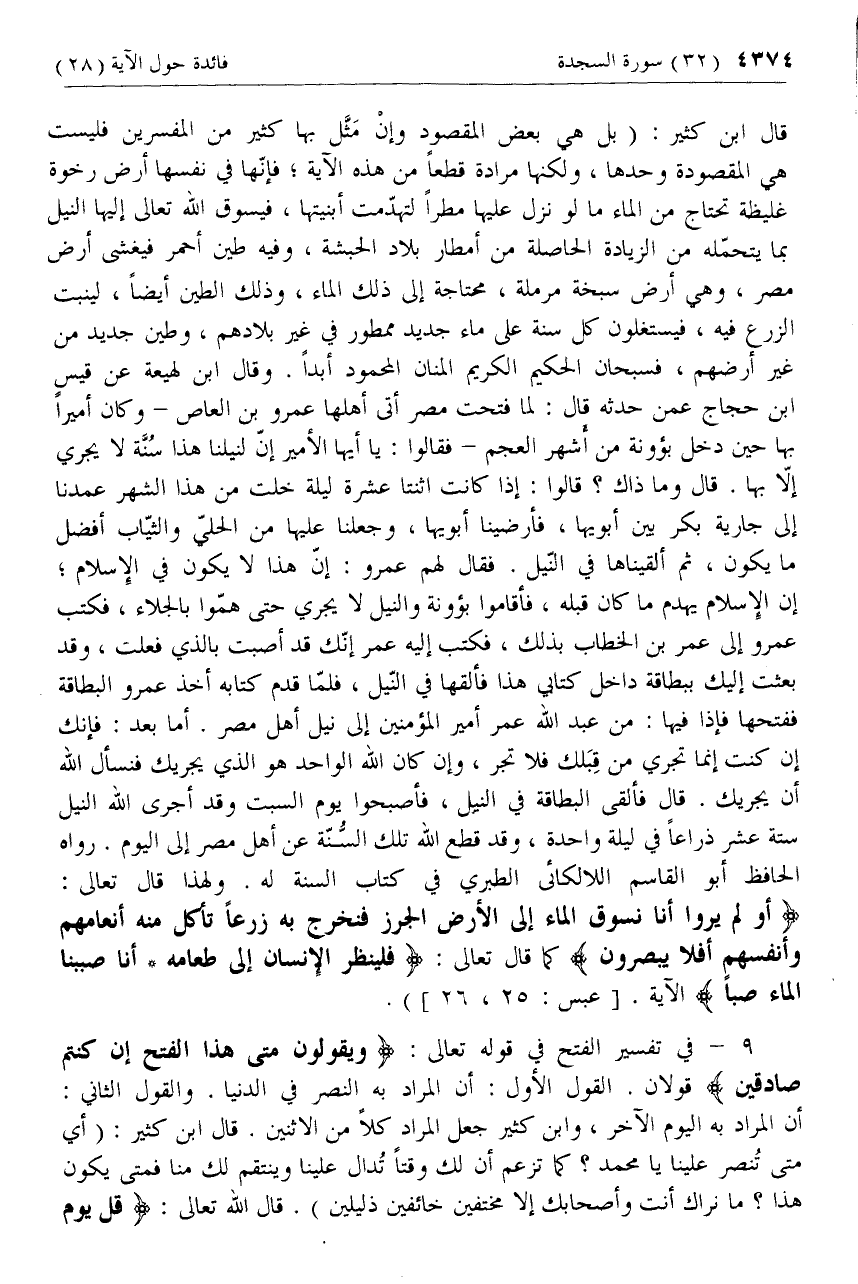 ٤٣٧٤ ( ٣٢ ) سورة السجدة فائدة حول الآية ( ٢٨ )
قال ابن كثير : ( بل هي بعض المقصود وإنْ مَثَّل بها كثير من المفسرين فليست
هي المقصودة وحدها ، ولكنها مرادة قطعاً من هذه الآية ؛ فإنّها في نفسها أرض رخوة
غليظة تحتاج من الماء ما لو نزل عليها مطراً لتهدّمت أبنيتها ، فيسوق الله تعالى إليها النيل
بما يتحمّله من الزيادة الحاصلة من أمطار بلاد الحبشة ، وفيه طين أحمر فيغشى أرض
مصر ، وهي أرض سبخة مرملة ، محتاجة إلى ذلك الماء ، وذلك الطين أيضاً ، لينبت
الزرع فيه ، فيستغلون كل سنة على ماء جديد ممطور في غير بلادهم ، وطين جديد من
غير أرضهم ، فسبحان الحكيم الكريم المنان المحمود أبداً . وقال ابن لهيعة عن قيس
ابن حجاج عمن حدثه قال : لما فتحت مصر أتى أهلها عمرو بن العاص – وكان أميراً
بها حين دخل بؤونة من أشهر العجم – فقالوا : يا أيها الأمير إنّ لنيلنا هذا سُنَّة لا يجري
إلّا بها . قال وما ذاك ؟ قالوا : إذا كانت اثنتا عشرة ليلة خلت من هذا الشهر عمدنا
إلى جارية بكر بين أبويها ، فأرضينا أبويها ، وجعلنا عليها من الحليّ والثيّاب أفضل
ما يكون ، ثم ألقيناها في النّيل . فقال لهم عمرو : إنّ هذا لا يكون في الإسلام ؛
إن الإسلام يهدم ما كان قبله ، فأقاموا بؤونة والنيل لا يجري حتى همّوا بالجلاء ، فكتب
عمرو إلى عمر بن الخطاب بذلك ، فكتب إليه عمر إنّك قد أصبت بالذي فعلت ، وقد
بعثت إليك ببطاقة داخل كتابي هذا فألقها في النّيل ، فلمّا قدم كتابه أخذ عمرو البطاقة
ففتحها فإذا فيها : من عبد الله عمر أمير المؤمنين إلى نيل أهل مصر . أما بعد : فإنك
إن كنت إنما تجري من قِبَلك فلا تجر ، وإن كان الله الواحد هو الذي يجريك فنسأل الله
أن يجريك . قال فألقى البطاقة في النيل ، فأصبحوا يوم السبت وقد أجرى الله النيل
ستة عشر ذراعاً في ليلة واحدة ، وقد قطع الله تلك السُّنّة عن أهل مصر إلى اليوم . رواه
الحافظ أبو القاسم اللالكائى الطبري في كتاب السنة له . ولهذا قال تعالى :
﴿ أو لم يروا أنا نسوق الماء إلى الأرض الجرز فنخرج به زرعاً تأكل منه أنعامهم
وأنفسهم أفلا يبصرون ﴾ كما قال تعالى : ﴿ فلينظر الإنسان إلى طعامه * أنا صببنا
الماء صباً ﴾ الآية . [ عبس : ٢٥ ، ٢٦ ] ) .
٩ – في تفسير الفتح في قوله تعالى : ﴿ ويقولون متى هذا الفتح إن كنتم
صادقين ﴾ قولان . القول الأول : أن المراد به النصر في الدنيا . والقول الثاني :
أن المراد به اليوم الآخر ، وابن كثير جعل المراد كلاً من الاثنين . قال ابن كثير : ( أي
متى تُنصر علينا يا محمد ؟ كما تزعم أن لك وقتاً تُدال علينا وينتقم لك منا فمتى يكون
هذا ؟ ما نراك أنت وأصحابك إلا مختفين خائفين ذليلين ) . قال الله تعالى : ﴿ قل يوم